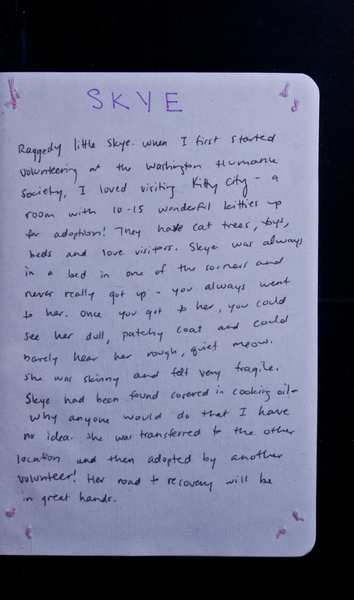 SKYE
Raggedy little Skye. When I first started
volunteering at the Washington Humane
Society, I loved visiting Kitty City - a
room with 10-15 wonderful kitties up
for adoption! They have cat trees, toys,
beds and love visitors. Skye was always
in a bed in one of the corners and
never really got up - you always went
to her. Once you got to her, you could
see her dull, patchy coat and could
barely hear her rough, quiet meow.
She was skinny and felt very fragile.
Skye had been found covered in cooking oil-
why anyone would do that I have
no idea. She was transferred to the other
location and then adopted by another
volunteer! Her road to recovery will be
in great hands.